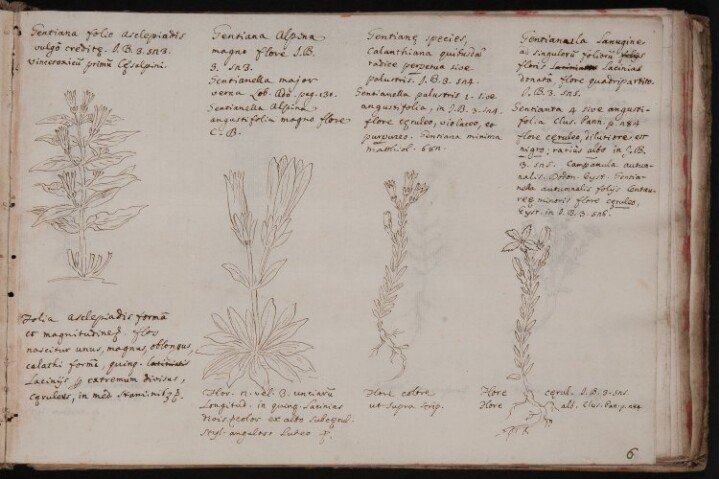 Gentiana folio Asclepiadis
vulgò creditę. J.B. 3. 523.
vincetoxicū primū Cęsalpini.
Folia Asclepiadis formā
et magnitudineq. flos
nascitur unus, magnus, oblongus,
calathi forma, quinq.
Lacinijs p extremum divisus,
cęruleus, in
Gentiana Alpina
magno flore J.B.
3. 523.
Gentianella major
verna Lob. Adv. pag. 130.
Gentianella Alpina
angustifolia magno flore
C.B.
Flos. n. vel. 3. unciarū
Longitud. in quinq. Lacinias
color ex alto subcęrul.
Styl. anguloso Luteo
Gentianę species,
Calathiana quibusdā
radice perpetua sive
palustris. J.B. 3. 524.
Gentianella palustris 2. sive
angustifolia, in J.B. 3. 524.
flore cęruleo, violaceo, et
purpureo. Gentiana minima
Matthiol. 680.
Flore colore
ut supra scrip.
Gentianella Lanugine
ad singulorū foliorū
floris Lacinias
ornata, flore quadripartito.
J.B. 3. 525.
Gentiana 4 sive angusti-
folia Clus. Pann. p. 284
flore cęruleo, dilutiore et
nigro; rariùs albo in J.B.
3. 525. Campanula autum-
nalis. Dodon. Eyst. Gentia-
nella autumnalis folijs Centau-
reę minoris flore cęruleo,
Eyst. in J.B. 3. 526.
Flore cęrul. J.B. 3. 525.
Flore alb. Clus. Pan. p. 284
6